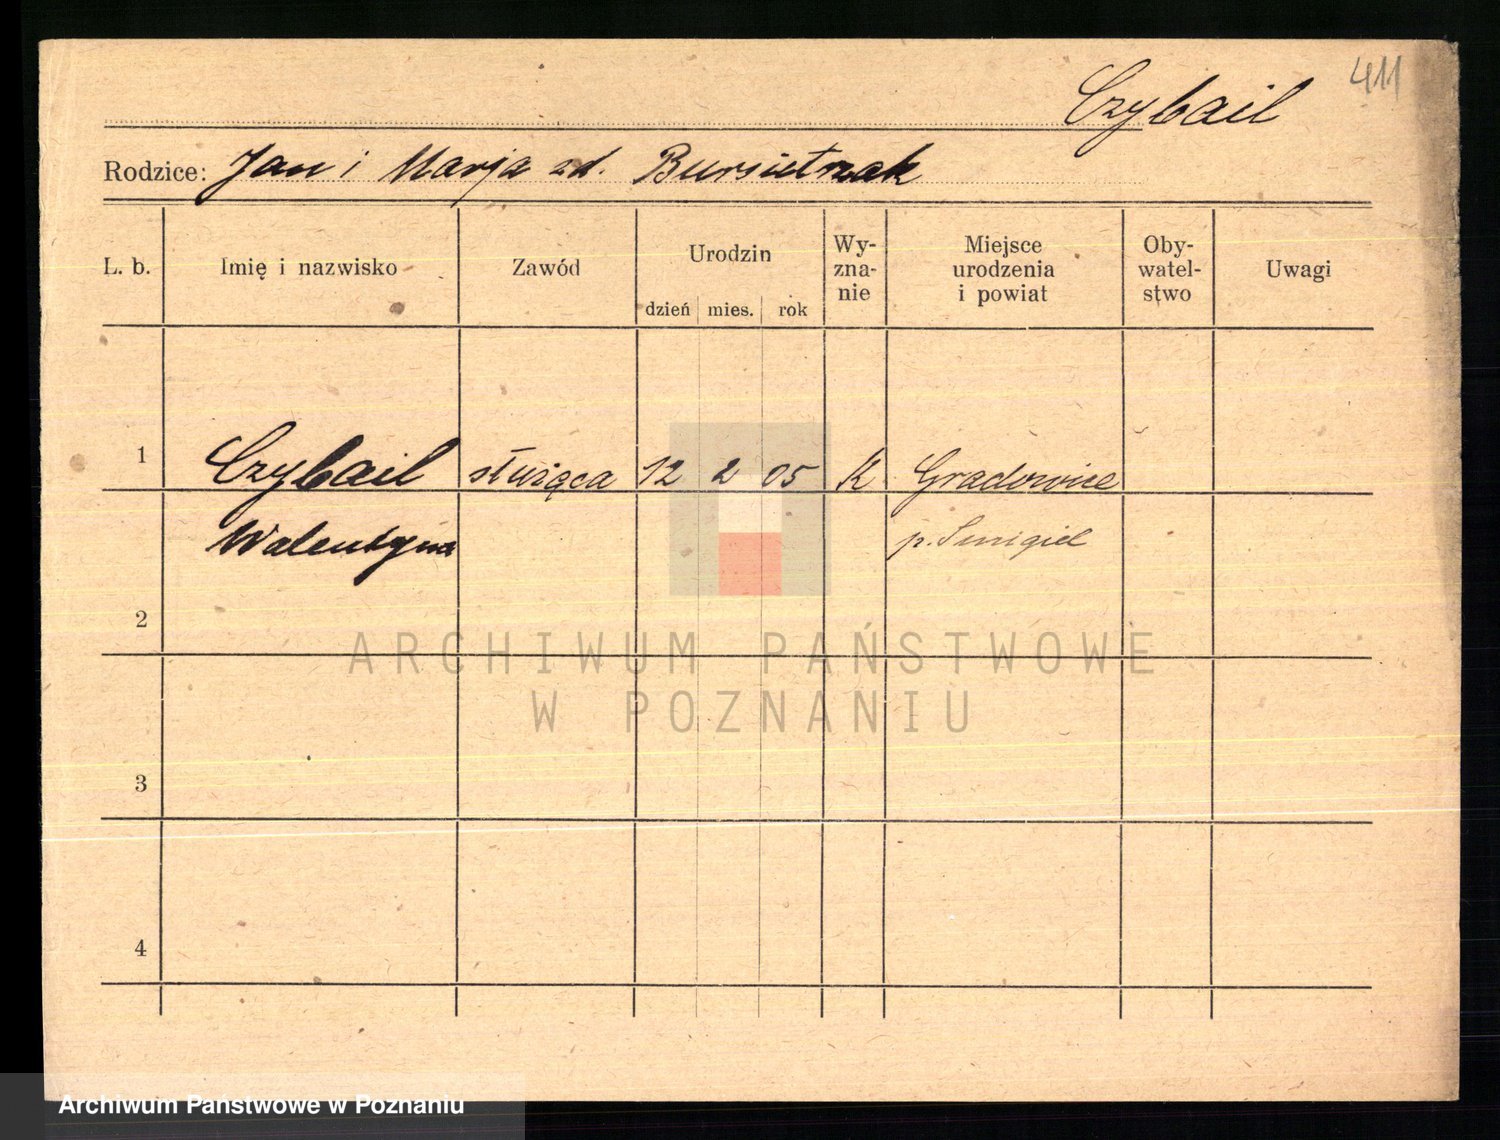 411
Czybail
Rodzice: Jan i Marja zd. Bursietrzak
L. b. Imię i nazwisko Zawód Urodzin dzień mies. rok Wy-zna-nie Miejsce urodzenia i powiat Oby-watel-stwo Uwagi
1 Czybail służąca 12 2 05 K Gradowice
Walentyna p. Smigiel
2
ARCHIWUM PAŃSTWOWE
W POZNANIU
3
4
Archiwum Państwowe w Poznaniu